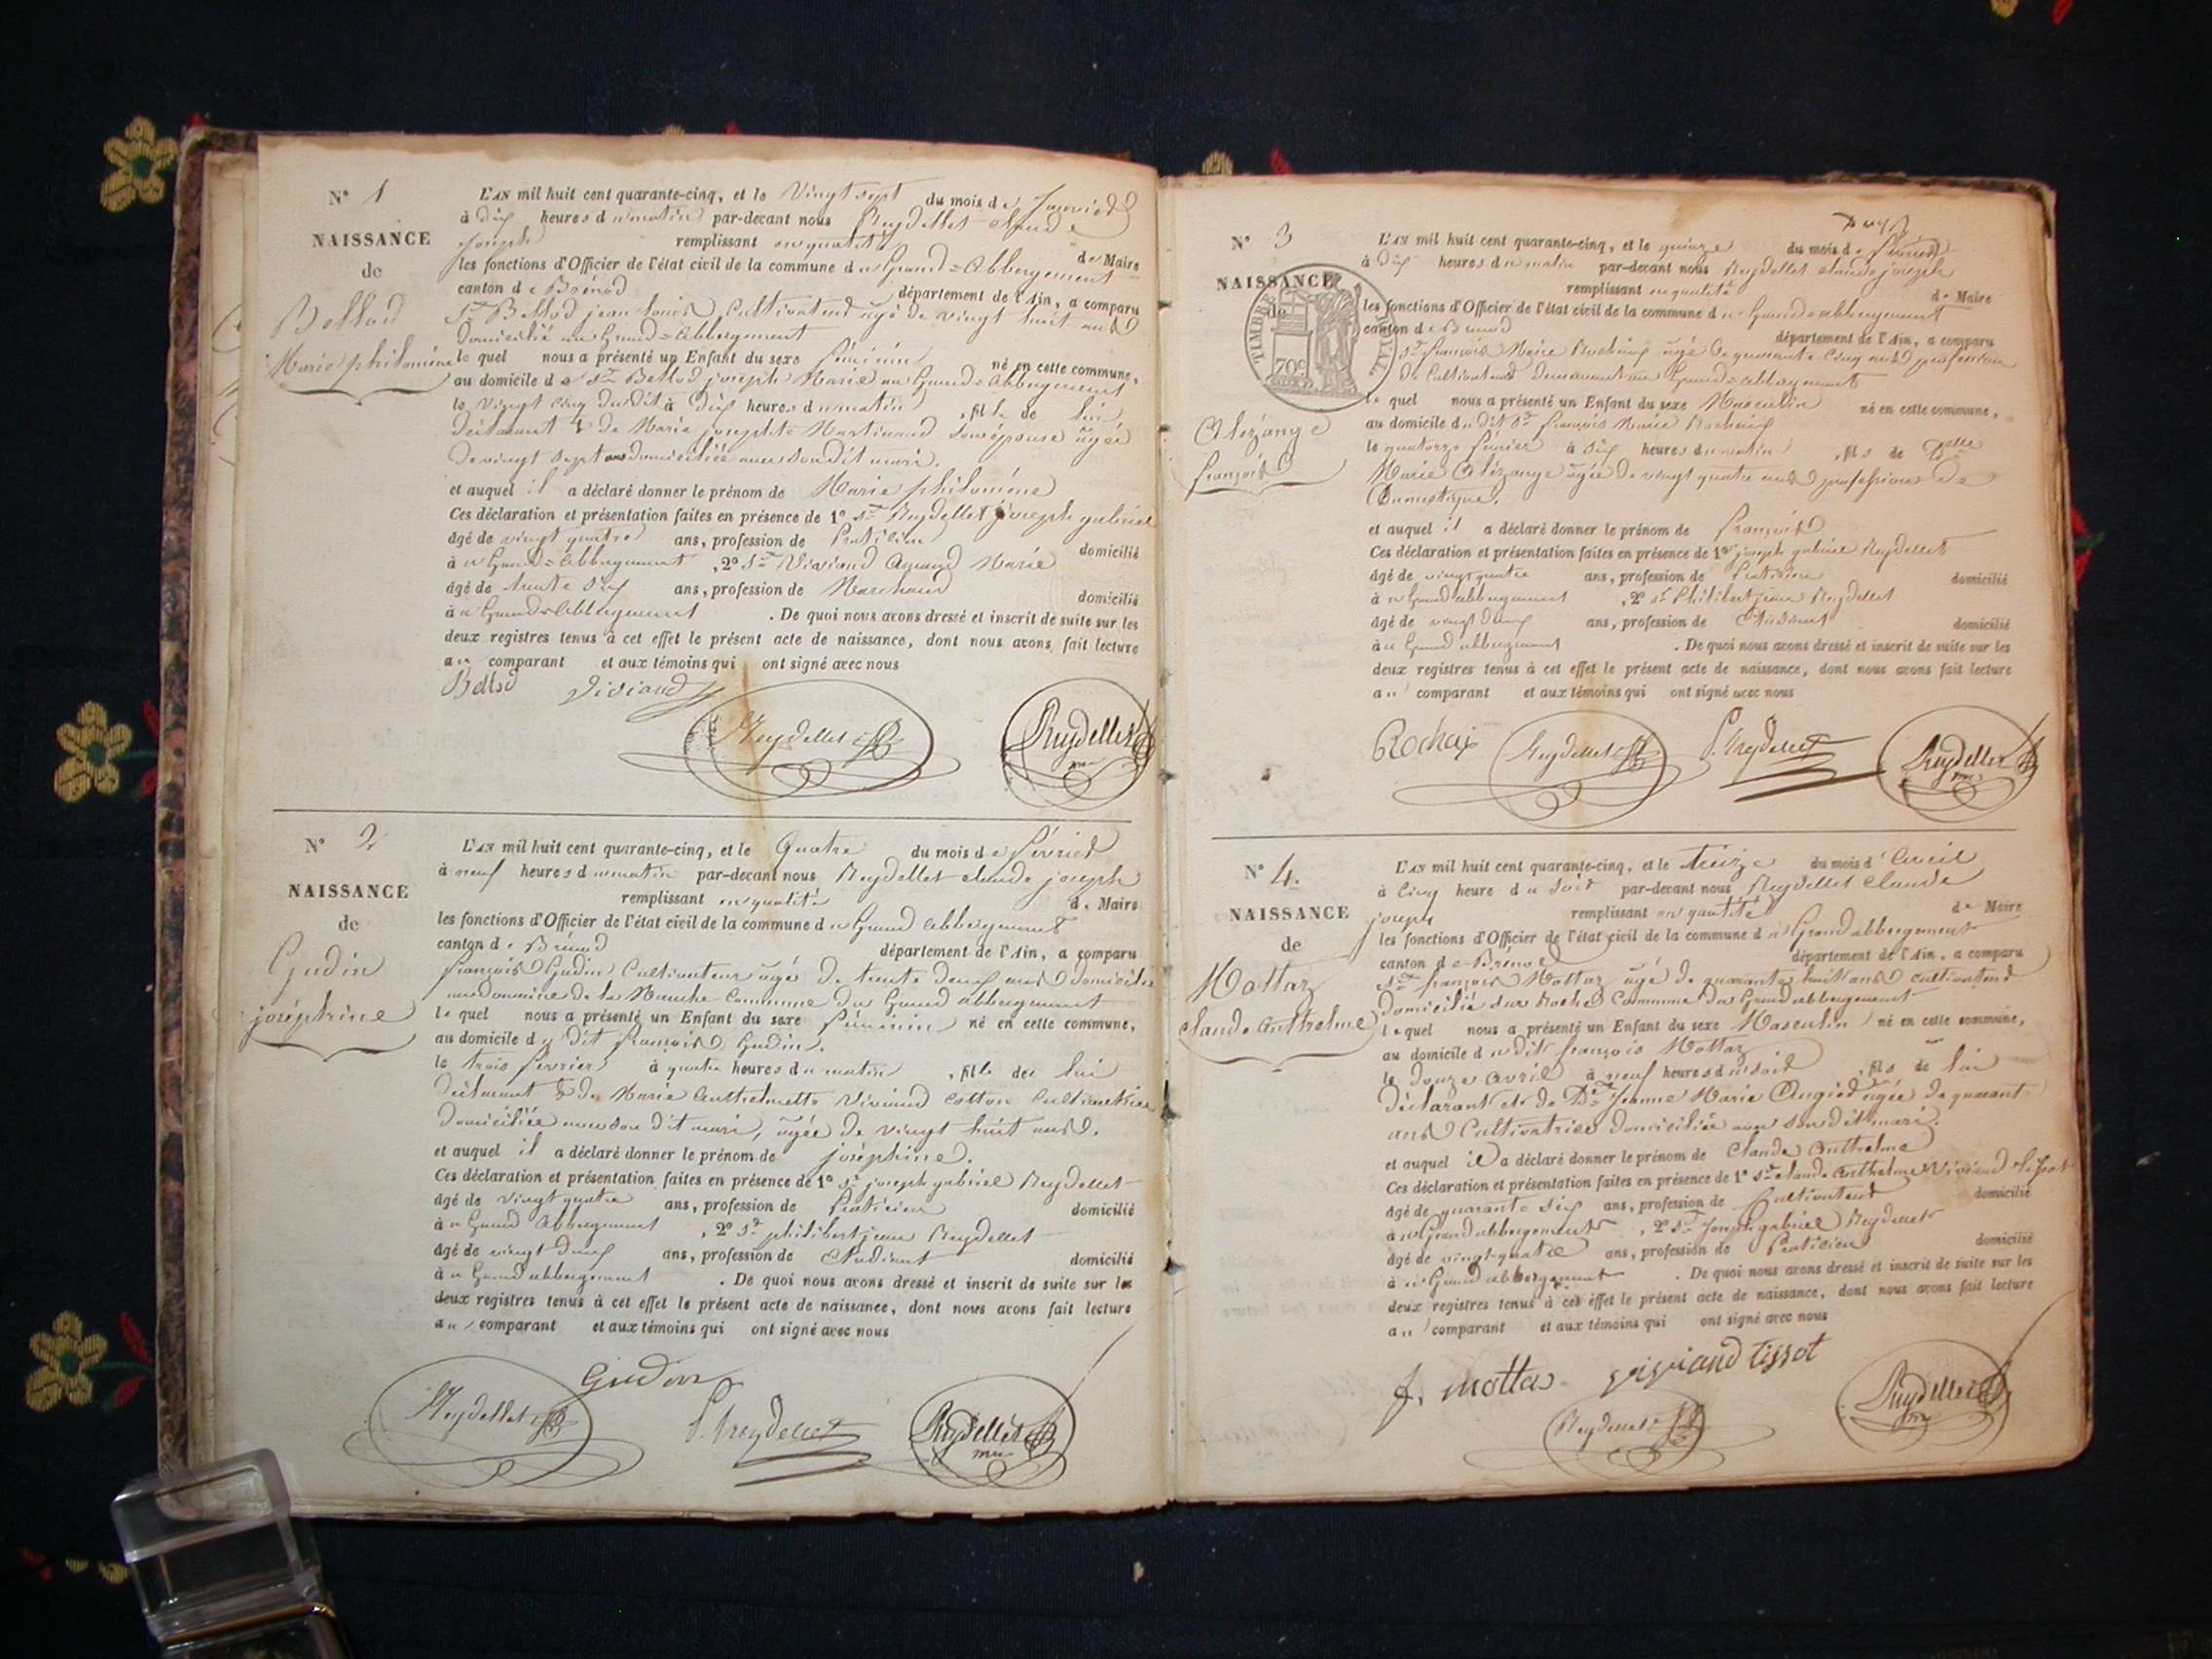 N° 1
NAISSANCE
de
Bollod
Marie philomène
L'AN mil huit cent quarante-cinq, et le Vingt sept du mois de Janvier
à dix heures du matin par-devant nous Reydellet claude
joseph remplissant en qualité de Maire
les fonctions d'Officier de l'état civil de la commune du Grand=Abbergement
canton de Brénod département de l'Ain, a comparu
Sr Bollod jean louis, Cultivateur âgé de vingt huit ans
domicilié au Grand=Abbergement
le quel nous a présenté un Enfant du sexe féminin né en cette commune,
au domicile de Sr Bollod joseph Marie au Grand=Abbergement
le vingt cinq dudit à dix heures du matin, fille de lui
déclarant & de Marie josephte Martinand son épouse âgée
de vingt sept ans domiciliée avec son dit mari.
et auquel il a déclaré donner le prénom de Marie philomène
Ces déclaration et présentation faites en présence de 1° Sr Reydellet joseph gabriel
âgé de vingt quatre ans, profession de Praticien domicilié
à u Grand=Abbergement, 2° Sr Viviand Marie
âgé de trente six ans, profession de Marchand domicilié
à u Grand=Abbergement. De quoi nous avons dressé et inscrit de suite sur les
deux registres tenus à cet effet le présent acte de naissance, dont nous avons fait lecture
au comparant et aux témoins qui ont signé avec nous
Bollod Viviand
Reydellet Reydellet
N° 2
NAISSANCE
de
Gudin
joséphine
L'AN mil huit cent quarante-cinq, et le Quatre du mois de février
à neuf heures du matin par-devant nous Reydellet claude joseph
remplissant en qualité de Maire
les fonctions d'Officier de l'état civil de la commune du Grand abbergement
canton de Brénod département de l'Ain, a comparu
françois Gudin Cultivateur âgé de trente deux ans domicilié
au domaine de la Manche Commune du Grand abbergement
le quel nous a présenté un Enfant du sexe féminin né en cette commune,
au domicile du dit françois Gudin.
le trois février à quatre heures du matin, fille de lui
déclarant & de Marie Anthelmette Viviand cotton Cultivatrice
domiciliée avec son dit mari, âgée de vingt huit ans.
et auquel il a déclaré donner le prénom de joséphine.
Ces déclaration et présentation faites en présence de 1° Sr joseph gabriel Reydellet
âgé de vingt quatre ans, profession de Praticien domicilié
à u Grand Abbergement, 2° Sr philibert jean Reydellet
âgé de vingt deux ans, profession de Etudiant domicilié
à u Grand abbergement. De quoi nous avons dressé et inscrit de suite sur les
deux registres tenus à cet effet le présent acte de naissance, dont nous avons fait lecture
au comparant et aux témoins qui ont signé avec nous
Gudin
Reydellet P. Reydellet Reydellet
N° 3
NAISSANCE
de
TIMBRE ROYAL
70c
Alézange
françois
L'AN mil huit cent quarante-cinq, et le quinze du mois de février
à dix heures du matin par-devant nous Reydellet claude joseph
remplissant en qualité de Maire
les fonctions d'Officier de l'état civil de la commune du Grand=abbergement
canton de Brénod département de l'Ain, a comparu
Sr françois Marie Rochaix âgé de quarante cinq ans profession
de Cultivateur demeurant au Grand=abbergement
le quel nous a présenté un Enfant du sexe Masculin né en cette commune,
au domicile du dit Sr françois Marie Rochaix
le quatorze février à six heures du matin, fils de Delle
Marie Alézange âgée de vingt quatre ans profession de
Domestique.
et auquel il a déclaré donner le prénom de françois
Ces déclaration et présentation faites en présence de 1° joseph gabriel Reydellet
âgé de vingt quatre ans, profession de Praticien domicilié
à u Grand abbergement, 2° Sr Philibert jean Reydellet
âgé de vingt deux ans, profession de Etudiant domicilié
à u Grand abbergement. De quoi nous avons dressé et inscrit de suite sur les
deux registres tenus à cet effet le présent acte de naissance, dont nous avons fait lecture
au comparant et aux témoins qui ont signé avec nous
Rochaix Reydellet P. Reydellet Reydellet
N° 4.
NAISSANCE
de
Mottaz
claude Anthelme
L'AN mil huit cent quarante-cinq, et le treize du mois d'Avril
à Cinq heure du soir par-devant nous Reydellet Claude
joseph remplissant en qualité de Maire
les fonctions d'Officier de l'état civil de la commune du Grand abbergement
canton de Brénod département de l'Ain, a comparu
Sr françois Mottaz âgé de quarante huit ans cultivateur
domicilié sur Roche Commune du Grand abbergement
le quel nous a présenté un Enfant du sexe Masculin né en cette commune,
au domicile du dit françois Mottaz
le douze avril à neuf heures du soir, fils de lui
déclarant et de De Jeanne Marie Augied âgée de quarante
ans Cultivatrice domiciliée avec son dit mari.
et auquel il a déclaré donner le prénom de Claude Anthelme
Ces déclaration et présentation faites en présence de 1° Sr claude Anthelme Viviand tissot
âgé de quarante six ans, profession de Cultivateur domicilié
à u Grand abbergement, 2° Sr Joseph gabriel Reydellet
âgé de vingt-quatre ans, profession de Praticien domicilié
à u Grand abbergement. De quoi nous avons dressé et inscrit de suite sur les
deux registres tenus à cet effet le présent acte de naissance, dont nous avons fait lecture
au comparant et aux témoins qui ont signé avec nous
f. mottaz viviand tissot
Reydellet Reydellet